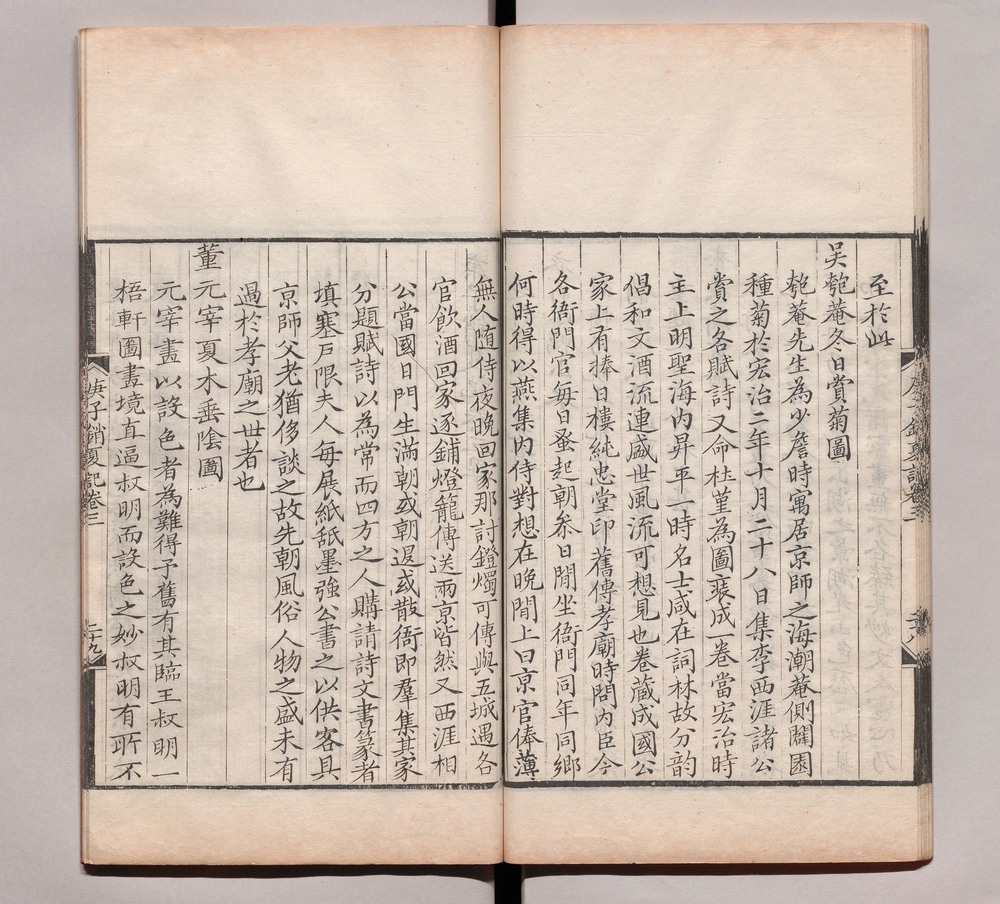 至於此
吴匏菴冬日賞菊圖
匏菴先生為少詹時寓居京師之海潮菴側闢園
種菊於宏治二年十月二十八日集李西涯諸公
賞之各賦詩又命杜堇為圖裝成一卷當宏治時
主上明聖海内昇平一時名士咸在詞林故分韵
倡和文酒流連盛世風流可想見也卷藏成國公
家上有捧日樓純忠堂印舊傳孝廟時問内臣今
各衙門官每日蚤起朝叅日閒坐衙門同年同鄉
何時得以燕集内侍對想在晚閒上曰京官俸薄
無人随侍夜晚回家那討鐙燭可傳與五城遇各
官飲酒回家逐鋪燈籠傳送兩京皆然又西涯相
公當國日門生滿朝或朝退或散衙即羣集其家
分題賦詩以為常而四方之人購請詩文書篆者
填塞戸限夫人每展紙舐墨強公書之以供客具
京師父老猶侈談之故先朝風俗人物之盛未有
過於孝廟之世者也
董元宰夏木垂陰圖
元宰畫以設色者為難得予舊有其臨王叔明一
梧軒圖畫境直逼叔明而設色之妙叔明有所不
庚子銷夏記卷三
二十九